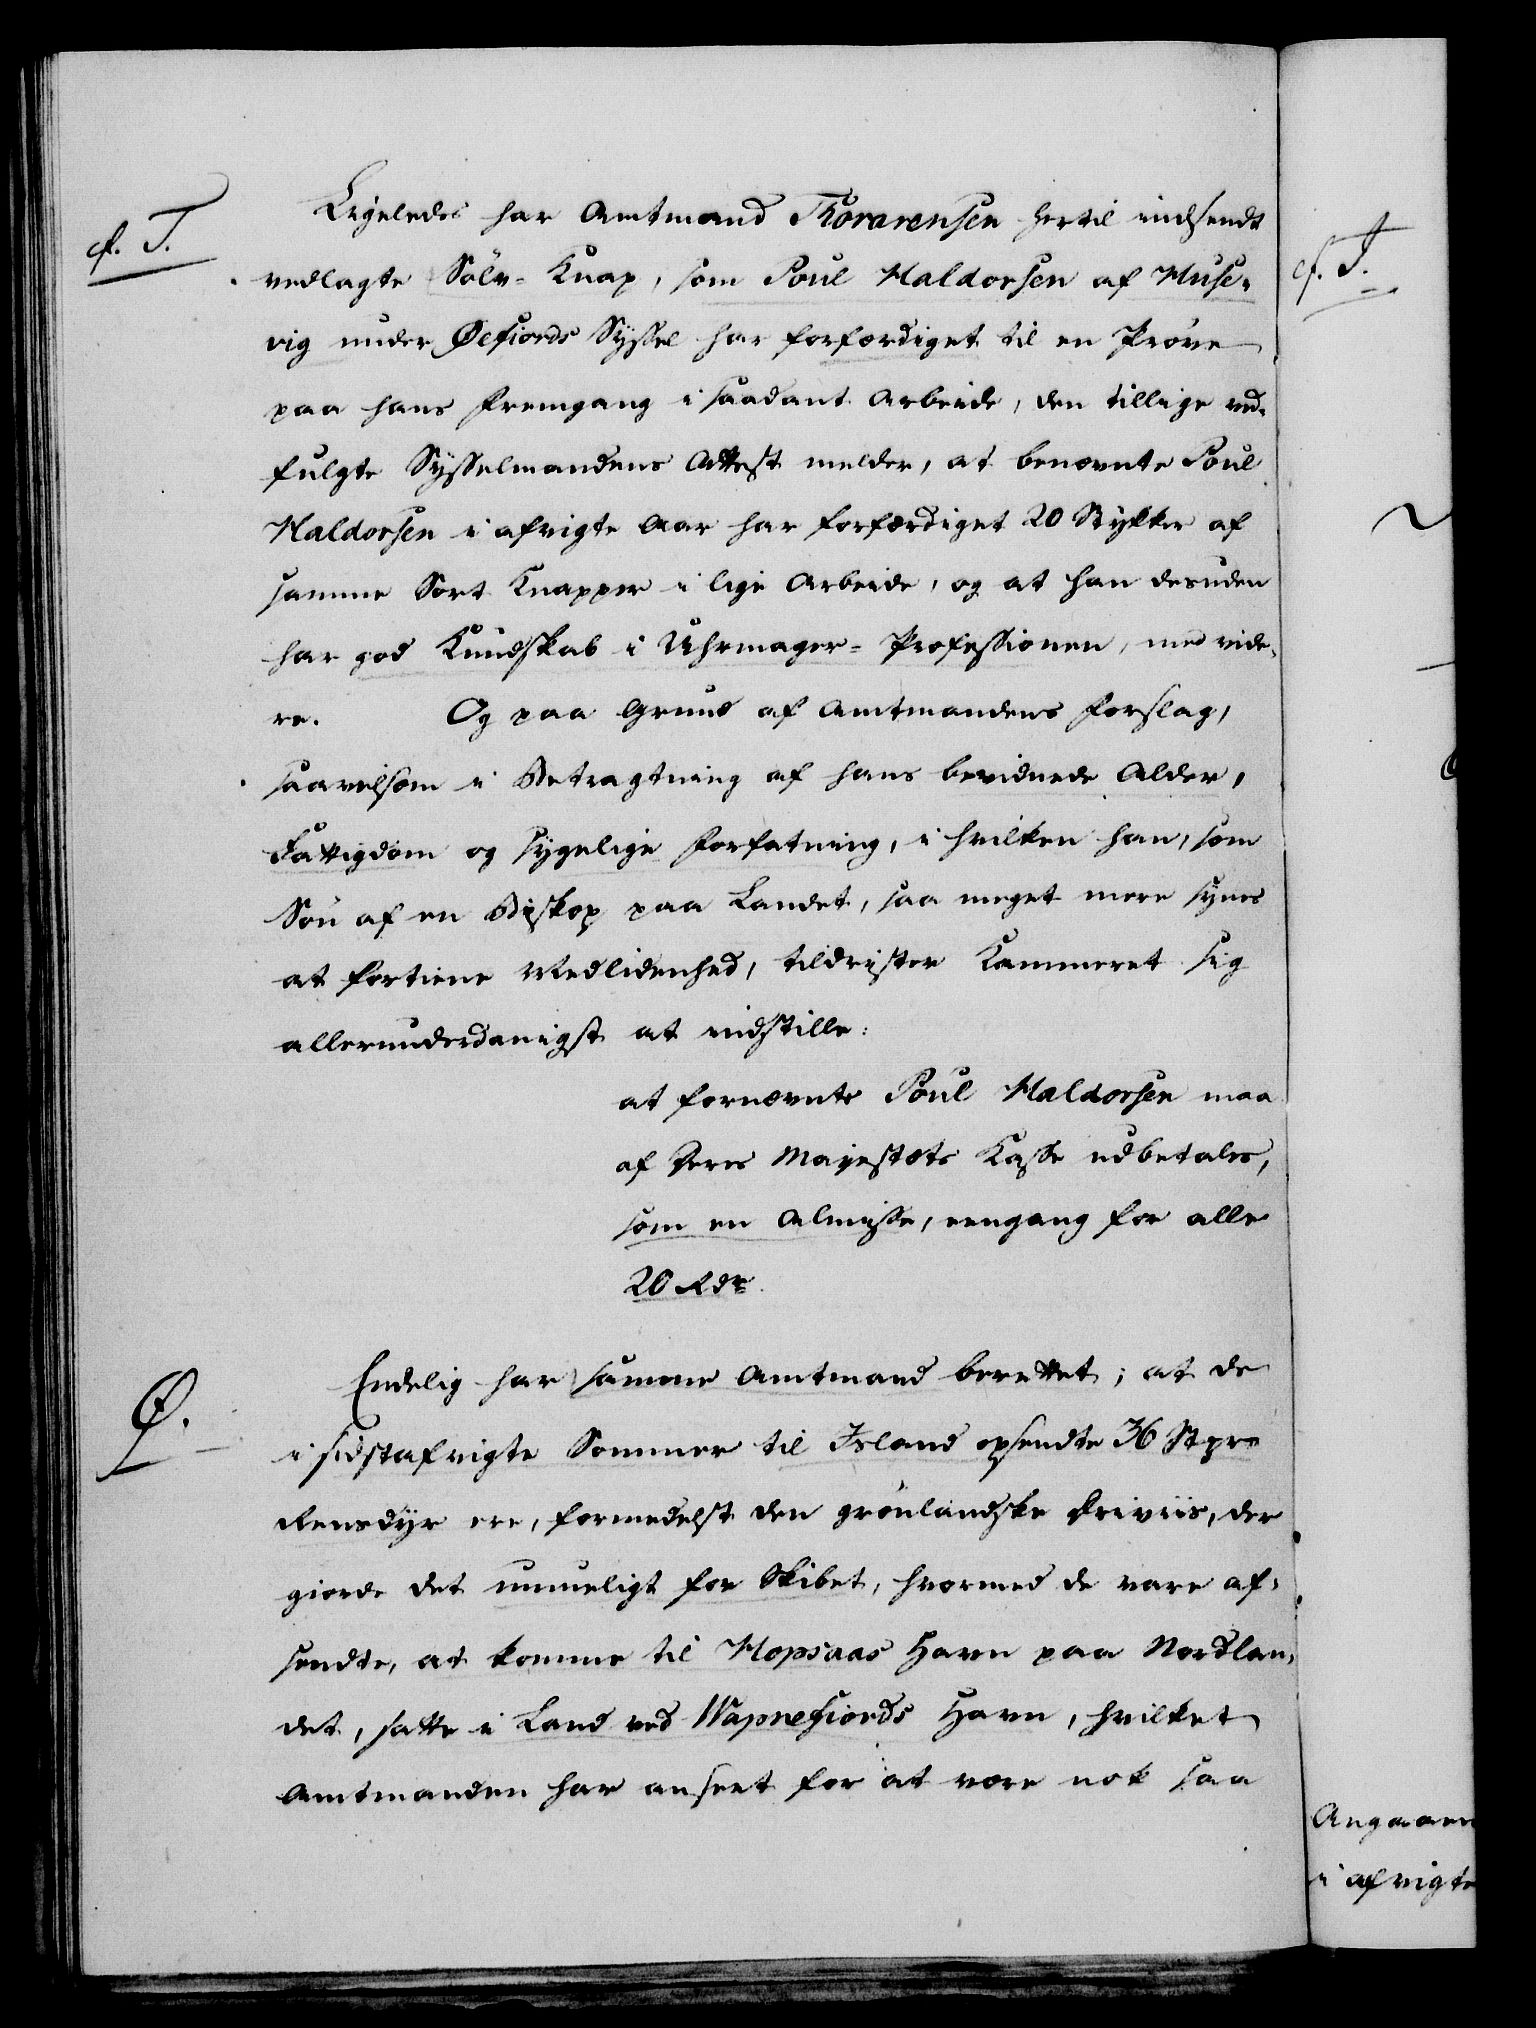 cf. T.
Ligeledes har Amtmand Thorarensen hertil indsendt
vedlagte Sölv-Knap, som Poul Haldorsen af Huse-
vig under Øefiords Syssel har forfærdiget til en Pröve
paa hans Fremgang i saadant Arbeide, den tillige ved-
fulgte Sysselmandens Attest melder, at benævnte Poul
Haldorsen i afvigte Aar har forfærdiget 20 Stykker af
samme Sort Knapper i lige Arbeide, og at han desuden
har god Kundskab i Uhrmager-Professionen, med vide-
re. Og paa Grund af Amtmandens Forslag,
saavelsom i Betragtning af hans bevidnede Alder,
Fattigdom og sygelige Forfatning, i hvilken han, som
Sön af en Biskop paa Landet, saa meget mere synes
at fortiene Medlidenhed, tildrister Kammeret sig
allerunderdanigst at indstille:
at fornævnte Poul Haldorsen maa
af Deres Majestæts Kasse udbetales,
som en Almisse, eengang for alle
20 Rdr.
Ø.
Endelig har samme Amtmand berettet; at de
i sidstafvigte Sommer til Island opsendte 36 Stkr
Rensdyr ere, formedelst den grönlandske Driviis, der
giorde det umueligt for Skibet, hvormed de vare af-
sendte, at komme til Hopsaas Havn paa Nordlan-
det, satte i Land ved Wapnefiords Havn, hvilket
Amtmanden har anseet for at være nok saa
cf. T.
Angaaen
i afvigte